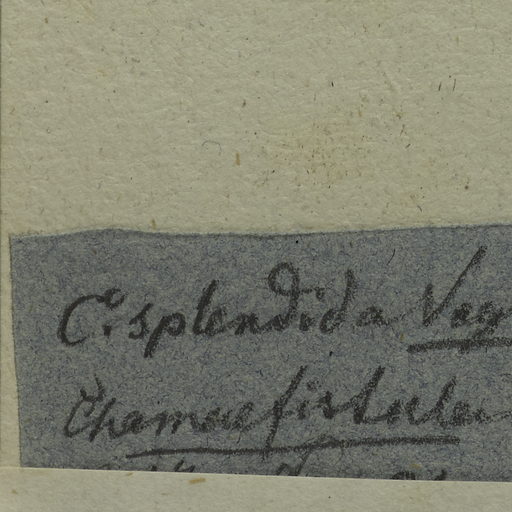 C. splendida Vog
Chamaefistulae